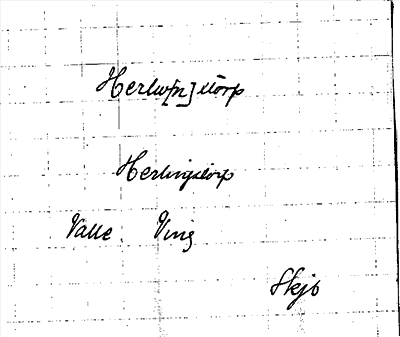 Herlw[n]storp
Herlingstorp
Valle Ving
Skjb